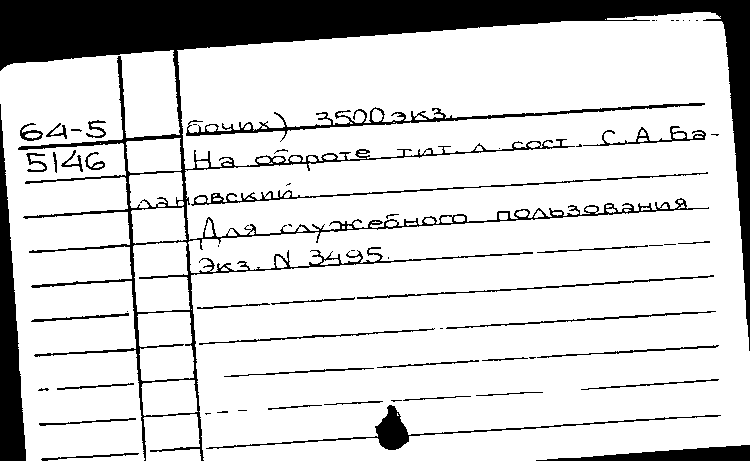 64-5 бочих) 3500 экз.
5146 На обороте тит. л сост. С.А.Ба-
лановский.
Для служебного пользования
Экз. N 3495.